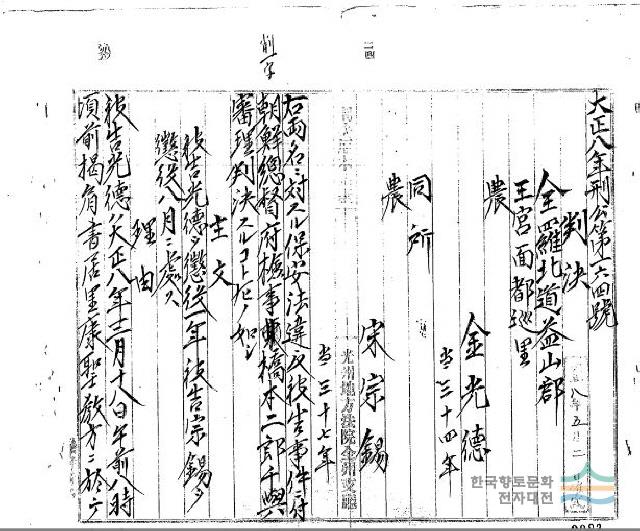 大正八年刑公第一六四號
判決
全羅北道益山郡
王宮面都巡里
農
金光德
當三十四年
同所
農
宋宗錫
當三十七年
右両名ニ対スル保安法違反被告事件ニ付
朝鮮總督府檢事橋本二郎干與
審理判決スルコト左ノ如シ
主文
被告光德ヲ懲役一年被告宗錫ヲ
懲役八月ニ處ス
理由
被告光德ハ大正八年三月十八日午前八時
項前揭肩書居里康聖敎方ニ於テ
削一字
光州地方法院全州支廳
한국향토문화
전자대전